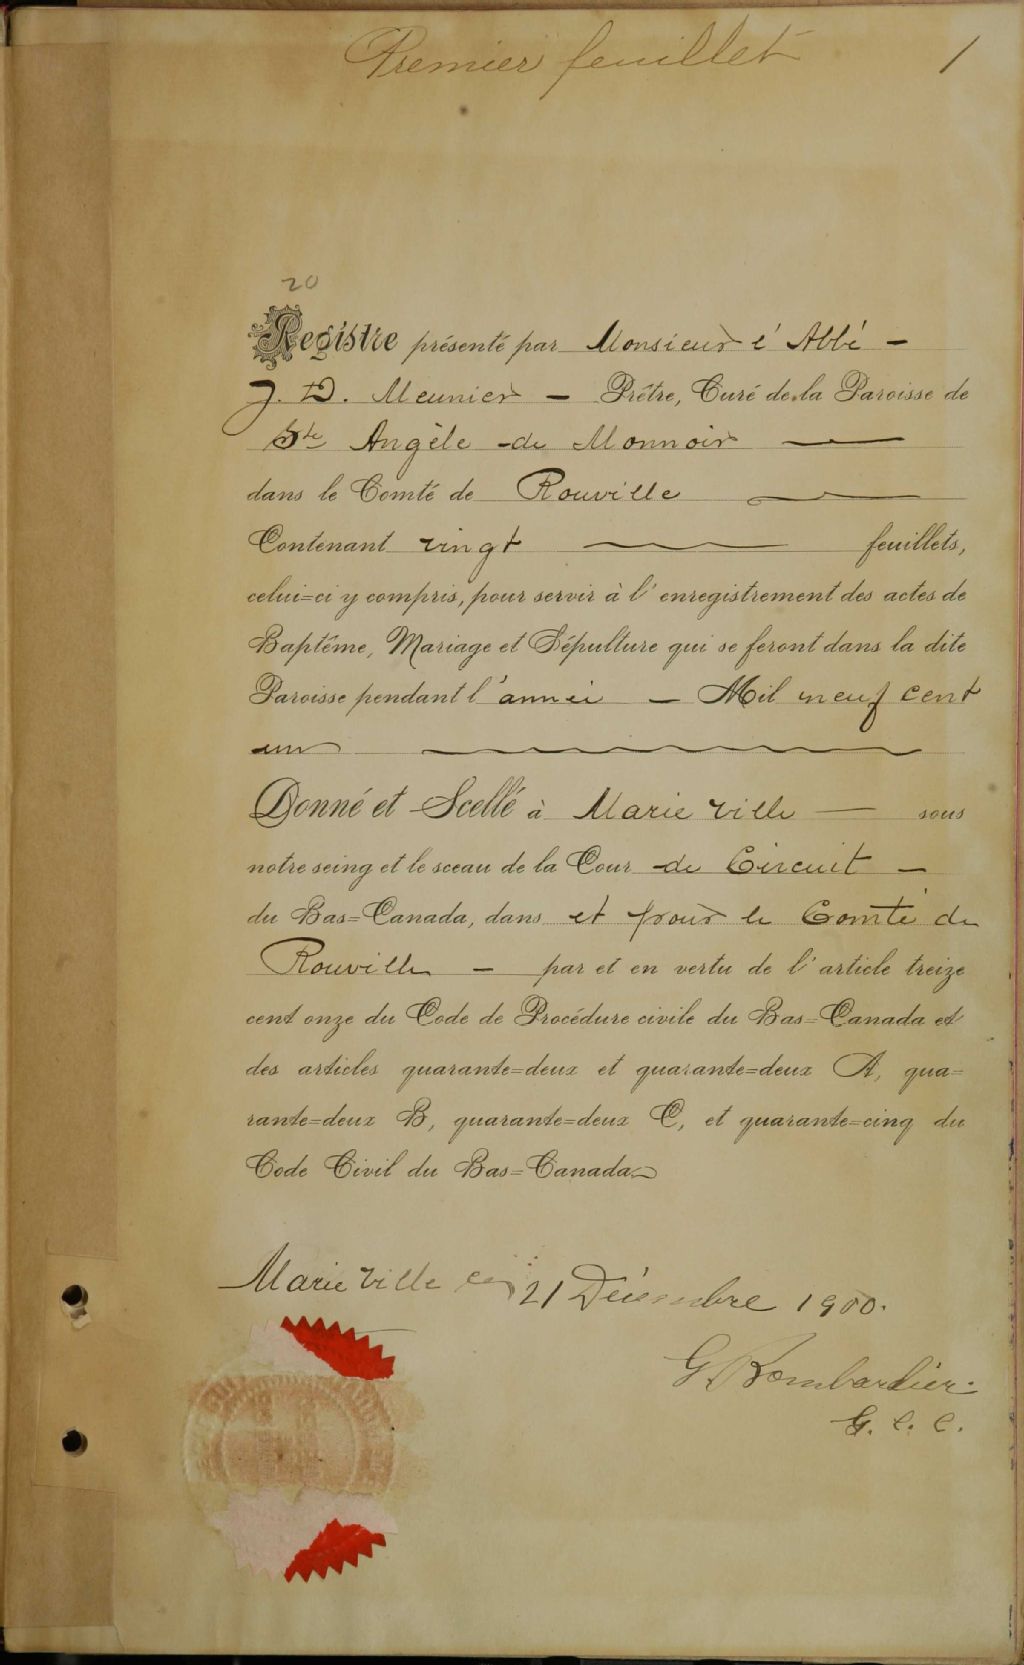 Premier feuillet 1
20
Registre présenté par Monsieur l'Abbé —
J. D. Meunier — Prêtre, Curé de la Paroisse de
Ste Angèle de Monnoir —
dans le Comté de Rouville —
Contenant vingt — feuillets,
celui=ci y compris, pour servir à l'enregistrement des actes de
Baptême, Mariage et Sépulture qui se feront dans la dite
Paroisse pendant l'année — Mil neuf cent
un —
Donné et Scellé à Marieville — sous
notre seing et le sceau de la Cour de Circuit —
du Bas=Canada, dans et pour le Comté de
Rouville — par et en vertu de l'article treize
cent onze du Code de Procédure civile du Bas=Canada et
des articles quarante=deux et quarante=deux A, qua=
rante=deux B, quarante=deux C, et quarante=cinq du
Code Civil du Bas=Canada
Marieville ce 21 Décembre 1900.
G. Bombardier
G. C. C.